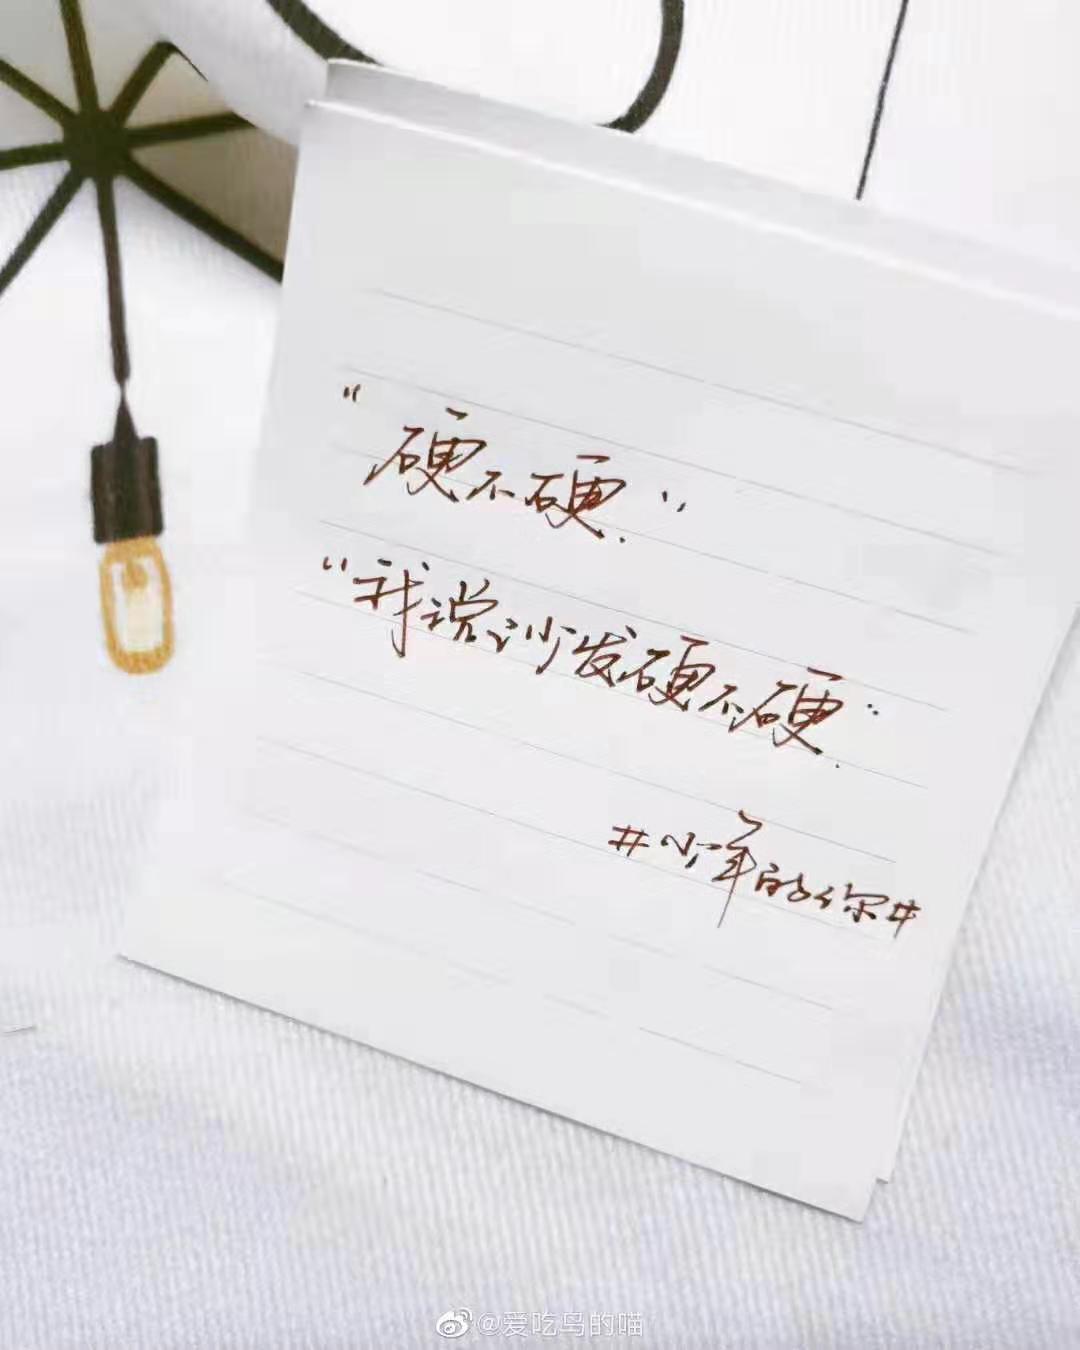 "硬不硬."
"我说沙发硬不硬."
#少年的你#
@爱吃鸟的喵